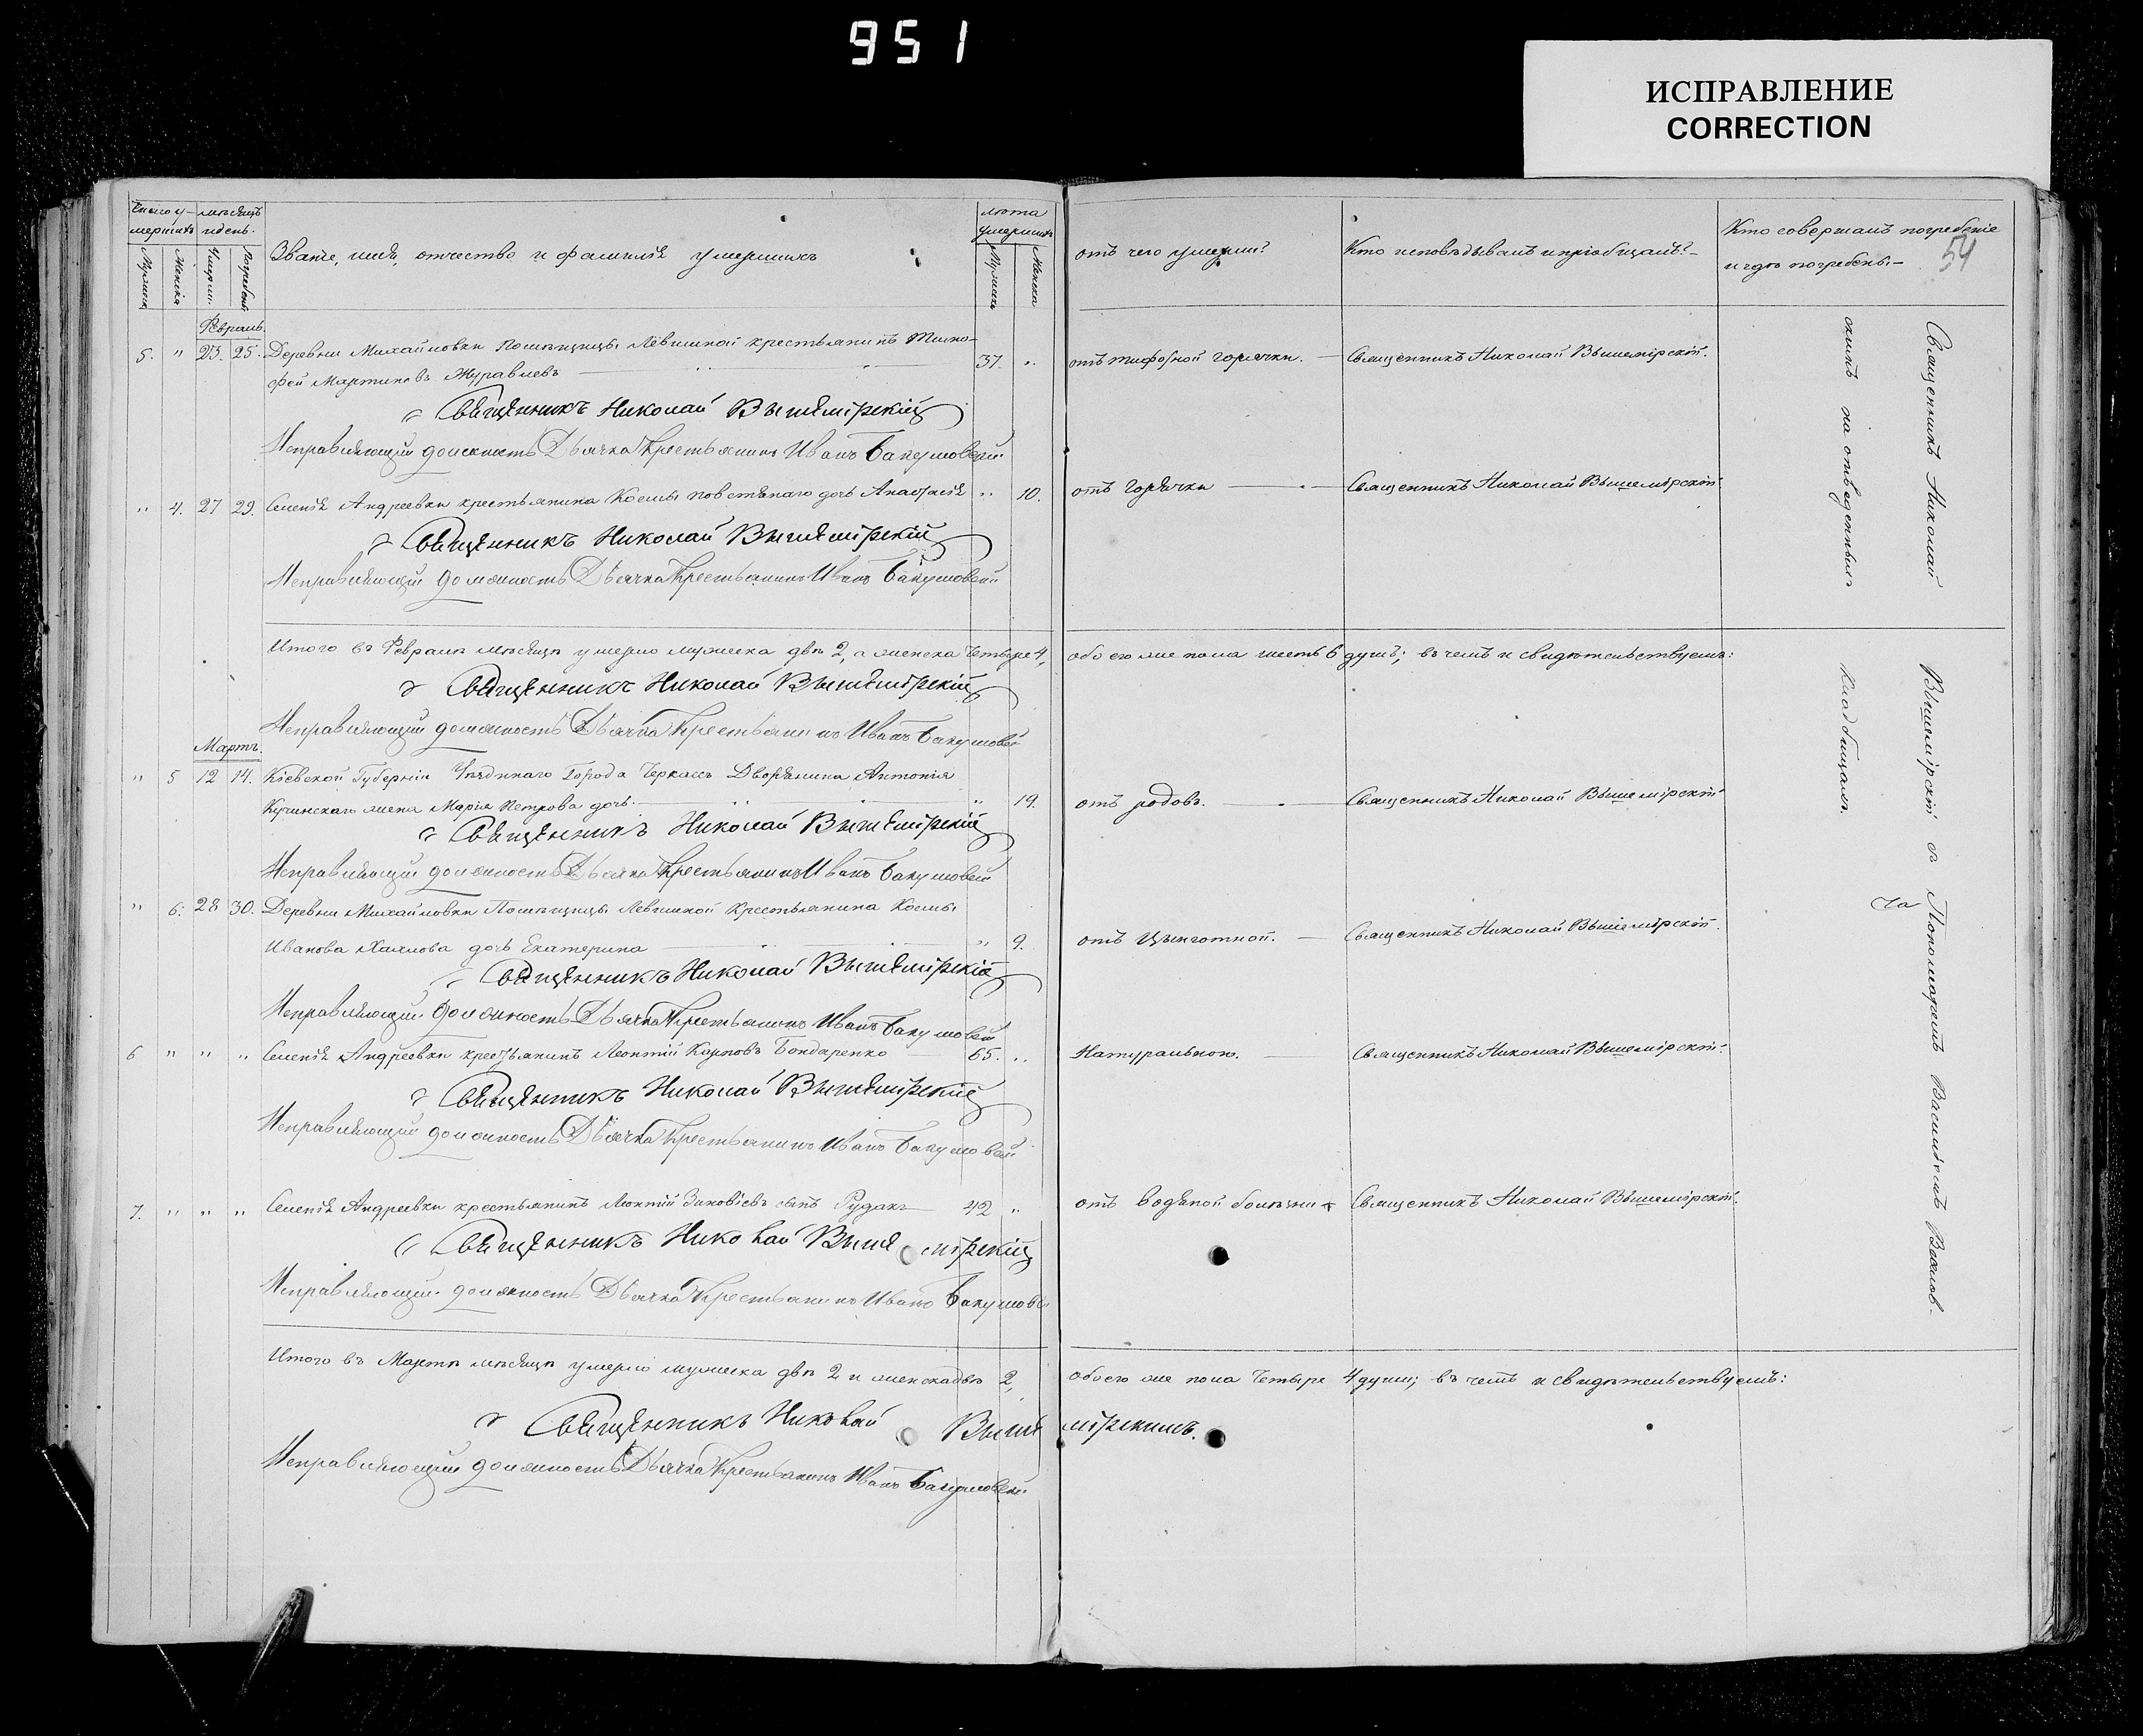 951
ИСПРАВЛЕНИЕ
CORRECTION
мѣсяцъ
и день.
лѣта
умершихъ
Званіе, имя, отчество и фамилія умершихъ
отъ чего умерли?
Кто исповѣдывалъ и пріобщалъ?
Кто совершалъ погребеніе
и гдѣ погребены.
54
Февраль.
5. " 23. 25. Деревни Михайловки Помѣщицы Левшиной крестьянинъ Тимо-
фей Мартиновъ Журавлевъ 37. " отъ тифозной горячки. Священникъ Николай Вышемірскій.
Священникъ Николай Вышемірскій
Исправляющій должность Дьячка Крестьянинъ Иванъ
" 4. 27 29. Селенія Андреевки крестьянина Космы дочь Анастасія " 10. отъ Горячки Священникъ Николай Вышемірскій
Священникъ Николай Вышемірскій
Исправляющій должность Дьячка Крестьянинъ Иванъ
Итого въ Февралѣ мѣсяцѣ умерло мужеска двѣ 2, а женска четыре 4, обоего же пола шесть 6 душъ; въ чемъ и свидѣтельствуемъ:
Священникъ Николай Вышемірскій
Исправляющій должность Дьячка Крестьянинъ Иванъ
Мартъ.
" 5 12 14. Кіевской Губерніи Уѣзднаго Города Черкасъ Дворянина Антонія
жена Марія Петрова дочь " 19. отъ родовъ. Священникъ Николай Вышемірскій
Священникъ Николай Вышемірскій
Исправляющій должность Дьячка Крестьянинъ Иванъ
" 6. 28 30. Деревни Михайловки Помѣщицы Левшиной Крестьянина Космы
Иванова дочь Екатерина " 9. отъ Цынготной. Священникъ Николай Вышемірскій.
Священникъ Николай Вышемірскій
Исправляющій должность Дьячка Крестьянинъ Иванъ
6 " " " Селенія Андреевки крестьянинъ Леонтій Карповъ Бондаренко 65. " Натуральною. Священникъ Николай Вышемірскій.
Священникъ Николай Вышемірскій
Исправляющій должность Дьячка Крестьянинъ Иванъ
7. " " " Селенія Андреевки крестьянинъ Леонтій Зиновіевъ сынъ Рудакъ 42 " отъ водяной болѣзни Священникъ Николай Вышемірскій.
Священникъ Николай Вышемірскій
Исправляющій должность Дьячка Крестьянинъ Иванъ
Итого въ Мартѣ мѣсяцѣ умерло мужеска двѣ 2 и женска двѣ 2, обоего же пола четыре 4 души; въ чемъ и свидѣтельствуемъ:
Священникъ Николай Вышемірскій.
Исправляющій должность Дьячка Крестьянинъ Иванъ
Священникъ Николай Вышемірскій съ Пономаремъ
на отведенныхъ
Кладбищахъ.